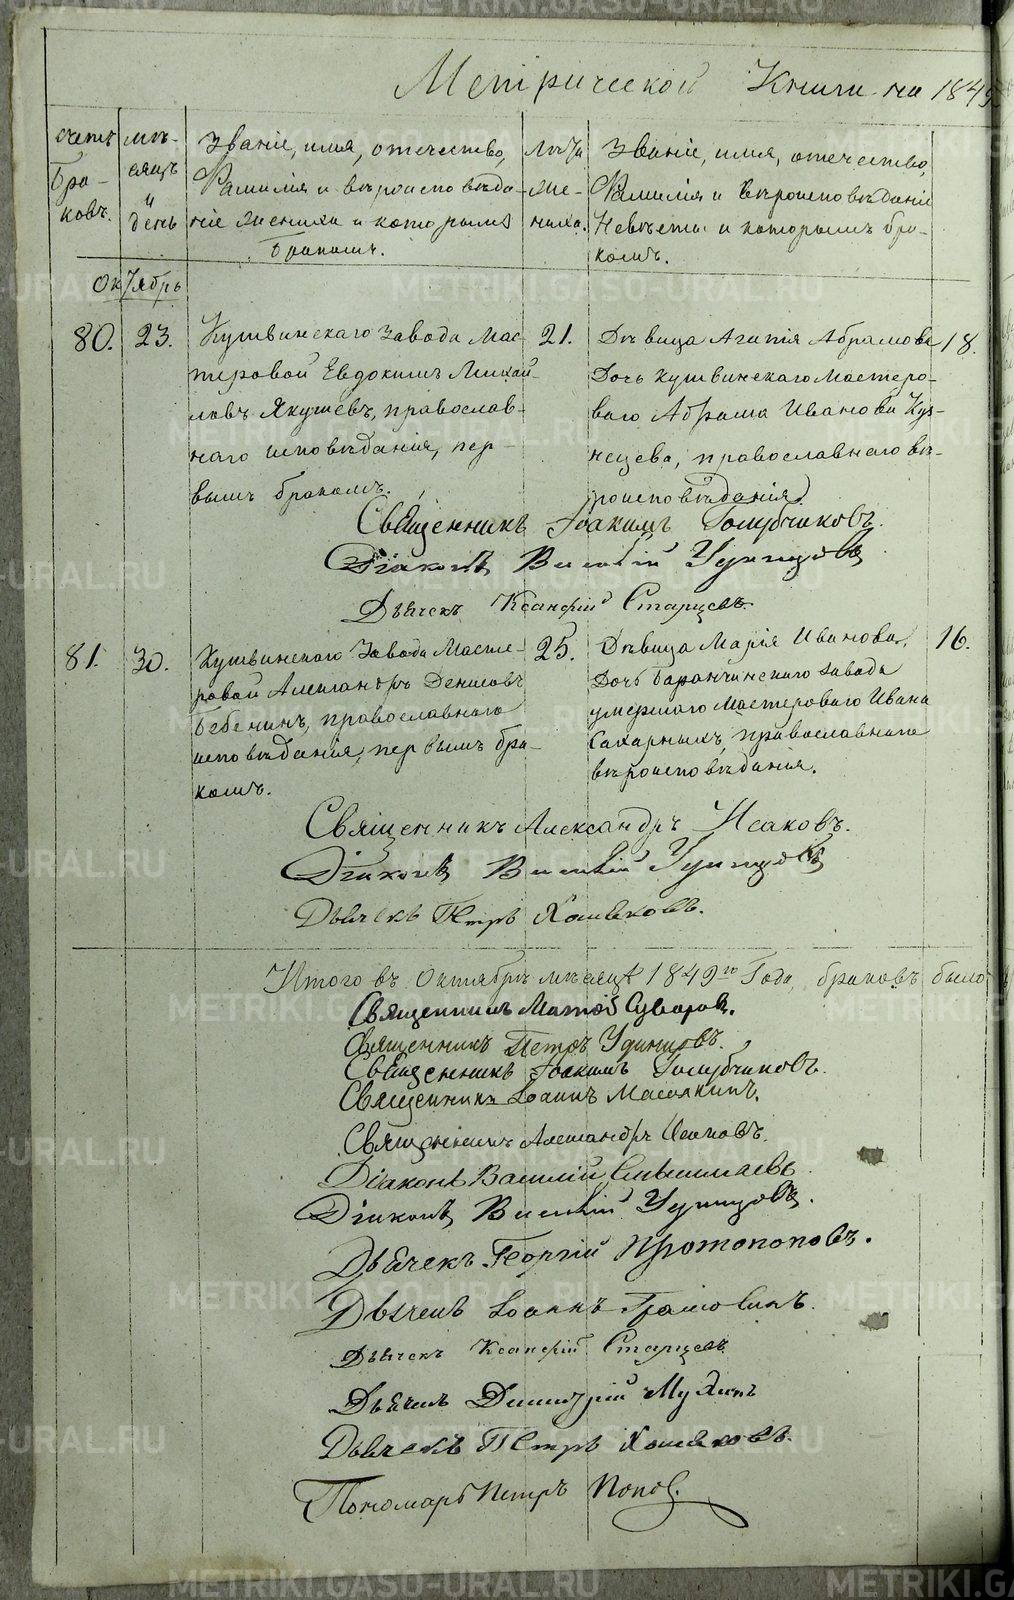 Метрической Книги на 1849
счетъ
Бра-
ковъ.
мѣ-
сяцъ
и
день
Званіе, имя, отечество,
Фамилія и вѣроисповѣда-
ніе жениха и которымъ
Бракомъ.
Лѣта
же-
ниха.
Званіе, имя, отечество,
Фамилія и вѣроисповѣданіе
Невѣсты и которымъ бра-
комъ.
Октябрь
80.
23.
Кушвинскаго завода Мас-
теровой Евдокимъ Михай-
ловъ Якушевъ, православ-
наго исповѣданія, пер-
вымъ бракомъ.
21.
Дѣвица Агапія Абрамова
Дочь кушвинскаго мастеро-
ваго Абрама Иванова Куз-
нецова, православнаго вѣ-
роисповѣданія
18.
Священникъ Іоакимъ Голубчиковъ.
Діаконъ Василій Удинцовъ
Дьячекъ Ксанфій Старцевъ.
81.
30.
Кушвинскаго Завода Масте-
ровой Александръ Денисовъ
Бебенинъ, православнаго
исповѣданія, первымъ бра-
комъ.
25.
Дѣвица Марія Иванова,
Дочь Баранчинскаго завода
умершаго мастероваго Ивана
Сахарныхъ, православнаго
вѣроисповѣданія.
16.
Священникъ Александръ Исаковъ.
Діаконъ Василій Удинцовъ
Дьячекъ Петръ Хомяковъ.
Итого въ Октябрѣ мѣсяцѣ 1849го Года, браковъ было
Священникъ Матөій Суворовъ.
Священникъ Петръ Удинцовъ.
Священникъ Іоакимъ Голубчиковъ.
Священникъ Іоаннъ Масляkинъ.
Священникъ Александръ Исаковъ.
Діаконъ Василій
Діаконъ Василій Удинцовъ.
Дьячекъ Георгій Протопоповъ.
Дьячекъ Іоаннъ
Дьячекъ Ксанфій Старцевъ
Дьячекъ Димитрій Мухинъ
Дьячекъ Петръ Хомяковъ.
Пономарь Петръ Поповъ.
METRIKI.GASO-URAL.RU